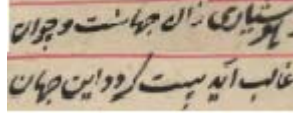 هوشیاری زان جهانست و چو آن
غالب آید پست گردد این جهان